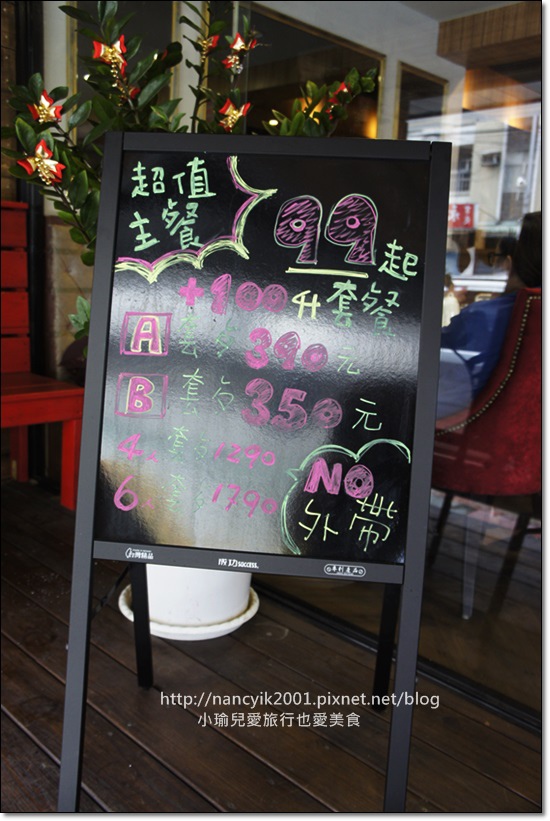 超值
主餐
99起
+100升套餐
A 套餐 390元
B 套餐 350元
4人套餐1290
6人套餐1790
NO
外帶
成功 success
專利產品
http://nancyik2001.pixnet.net/blog
小瑜兒愛旅行也愛美食